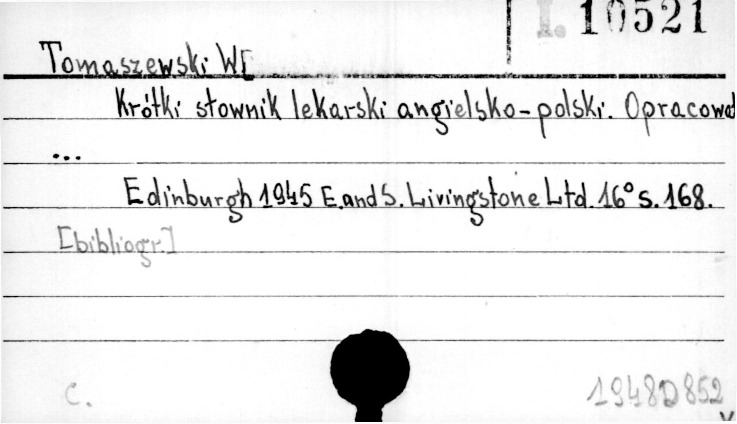 I. 10521
Tomaszewski W[
Krótki słownik lekarski angielsko-polski. Opracował
...
Edinburgh 1945 E.and S. Livingstone Ltd. 16° s. 168.
[bibliogr.]
C. 1948 D 852